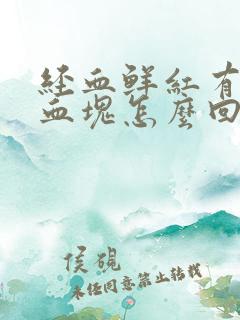 经血鲜红有
血塊怎麼回
侯硯
未经同意禁止转载